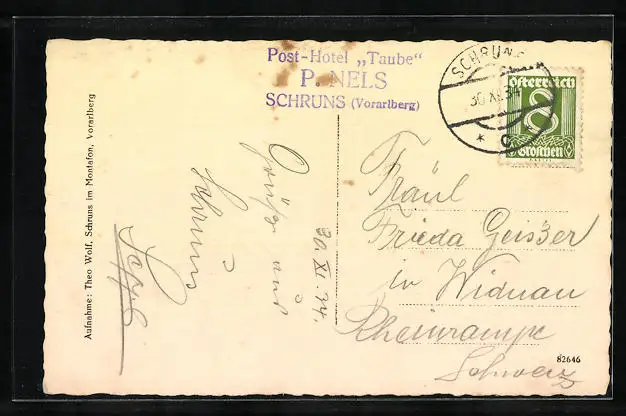 Post-Hotel „Taube“
P. NELS
SCHRUNS (Vorarlberg)
SCHRUNS
30.XI.34
* c
Österreich
8
Groschen
Aufnahme: Theo Wolf, Schruns im Montafon, Vorarlberg
30.XI.34.
Grüße aus
Schruns
Fräul
Frieda Geißer
in Widnau
Schweiz
82646